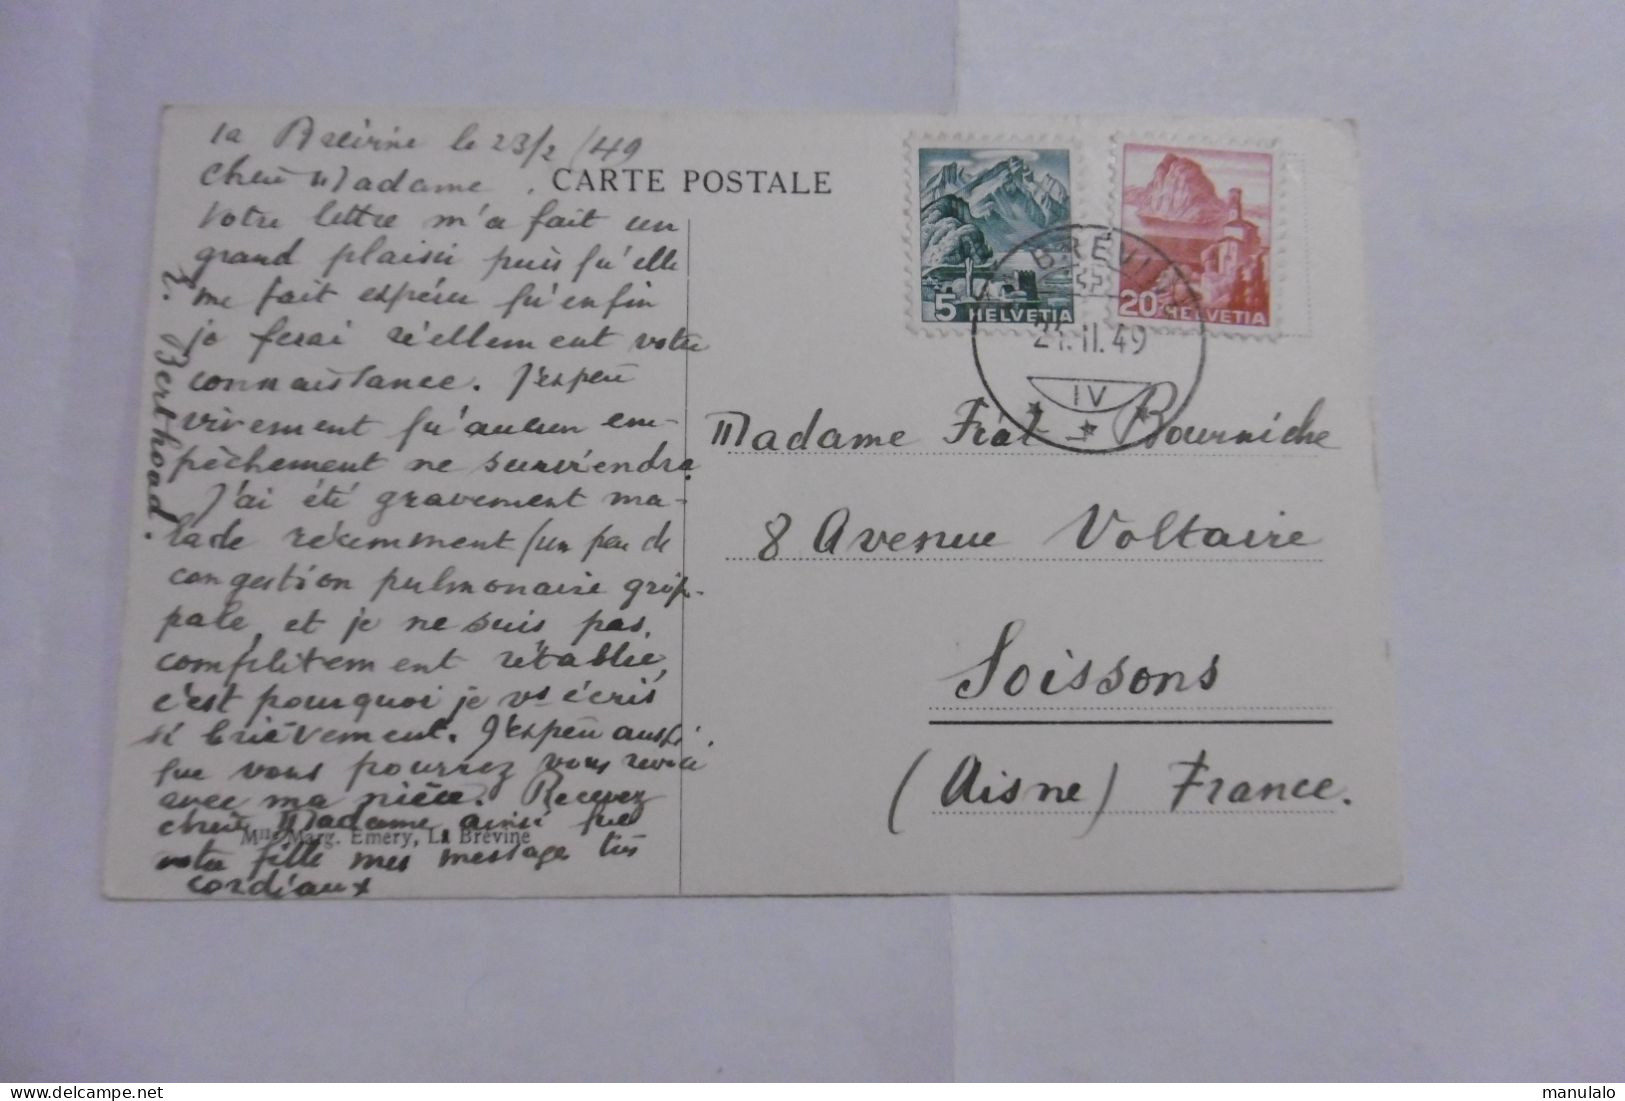 la Brévine le 23/2/49
chère Madame.
CARTE POSTALE
Votre lettre m'a fait un
grand plaisir puis qu'elle
me fait espérer qu'enfin
je ferai réellement votre
connaissance. J'espère
vivement qu'aucun em-
pêchement ne surviendra.
J'ai été gravement ma-
lade récemment (un peu de
congestion pulmonaire grip-
pale, et je ne suis pas
complètement rétablie,
c'est pourquoi je vs écris
si brièvement. J'espère aussi
que vous pourrez vous revoir
avec ma nièce. Recevez
chère Madame ainsi que
votre fille mes message très
cordiaux
E. Berthoud.
Mlle Marg. Emery, La Brévine
5 HELVETIA
20 HELVETIA
BRÉVINE
24.II.49
IV
Madame Bourniche
8 Avenue Voltaire
Soissons
(Aisne) France.
manulalo